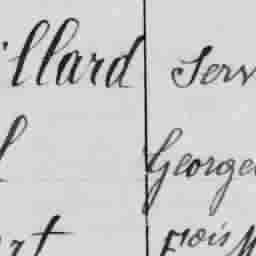 illard Serv
l George
rt frois M